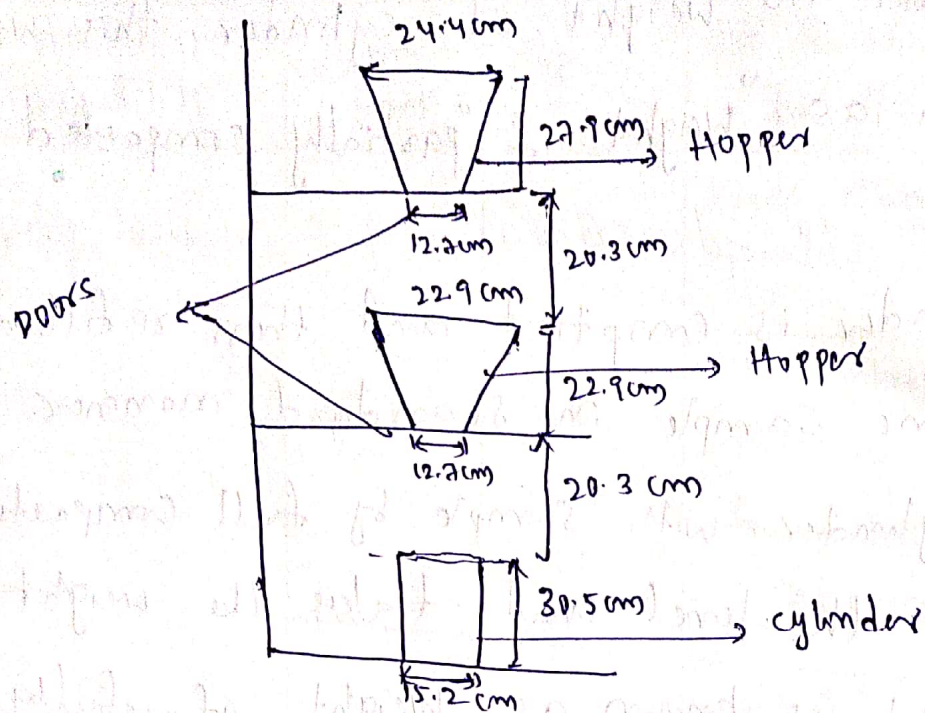 24.4cm
27.9cm
Hopper
12.7cm
20.3cm
Doors
22.9cm
Hopper
22.9cm
12.7cm
20.3 cm
30.5cm
cylinder
15.2cm